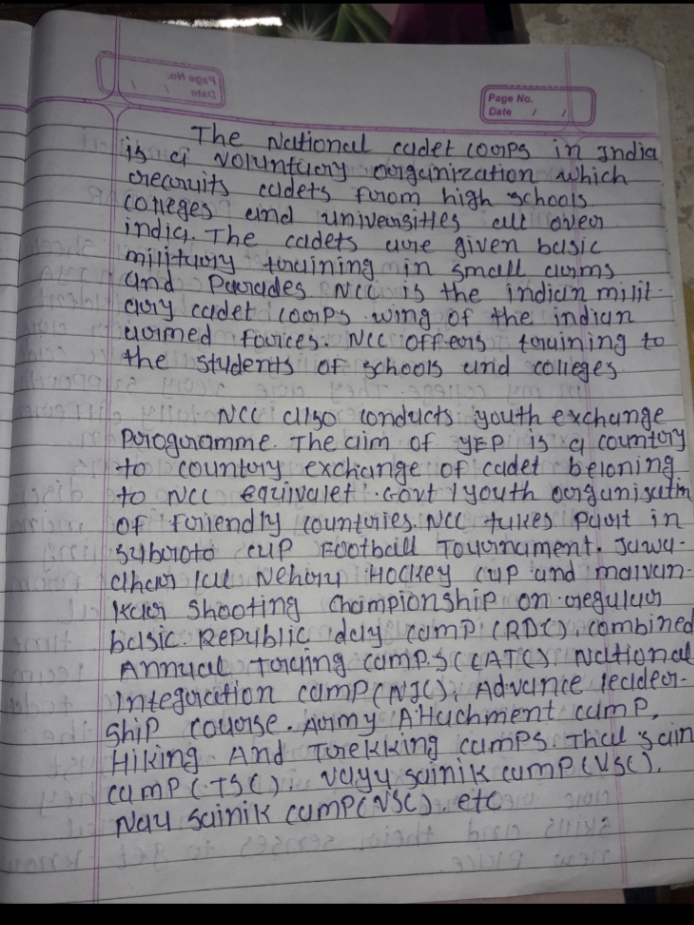 Page No.
Date / /
Page No.
Date / /
The National cadet coorps in India
is a voluntuory oorganization which
orecoruits cadets forom high schools
colleges and univeorsities all oveor
india. The cadets aore given basic
milituory toraining in small aorms
and Paorades NCC is the indian milit-
aory cadet coorps wing of the indian
aormed foorces. NCC offeors toraining to
the students of schools and colleges
NCC also conducts youth exchange
Porogoramme. The aim of YEP is a countory
to countory exchange of cadet beloning
to NCC equivalet Govt / youth oorganisation
of foriendly countories. NCC takes Paort in
Suboroto cup Football Touornament. Jawa-
ahaor lal Nehoru Hockey cup and malvan-
kaor shooting championship on oregulaor
basic. Republic day camp (RDC), combined
Annual Toraing camp.S (CATC) National
Integoration camp (NIC), Advance leadeor-
ship couorse. Aormy Attachment camp,
Hiking And Torekking camps. Thal sain
camp (TSC), vayu sainik camp (VSC),
Nav sainik camp (NSC), etc